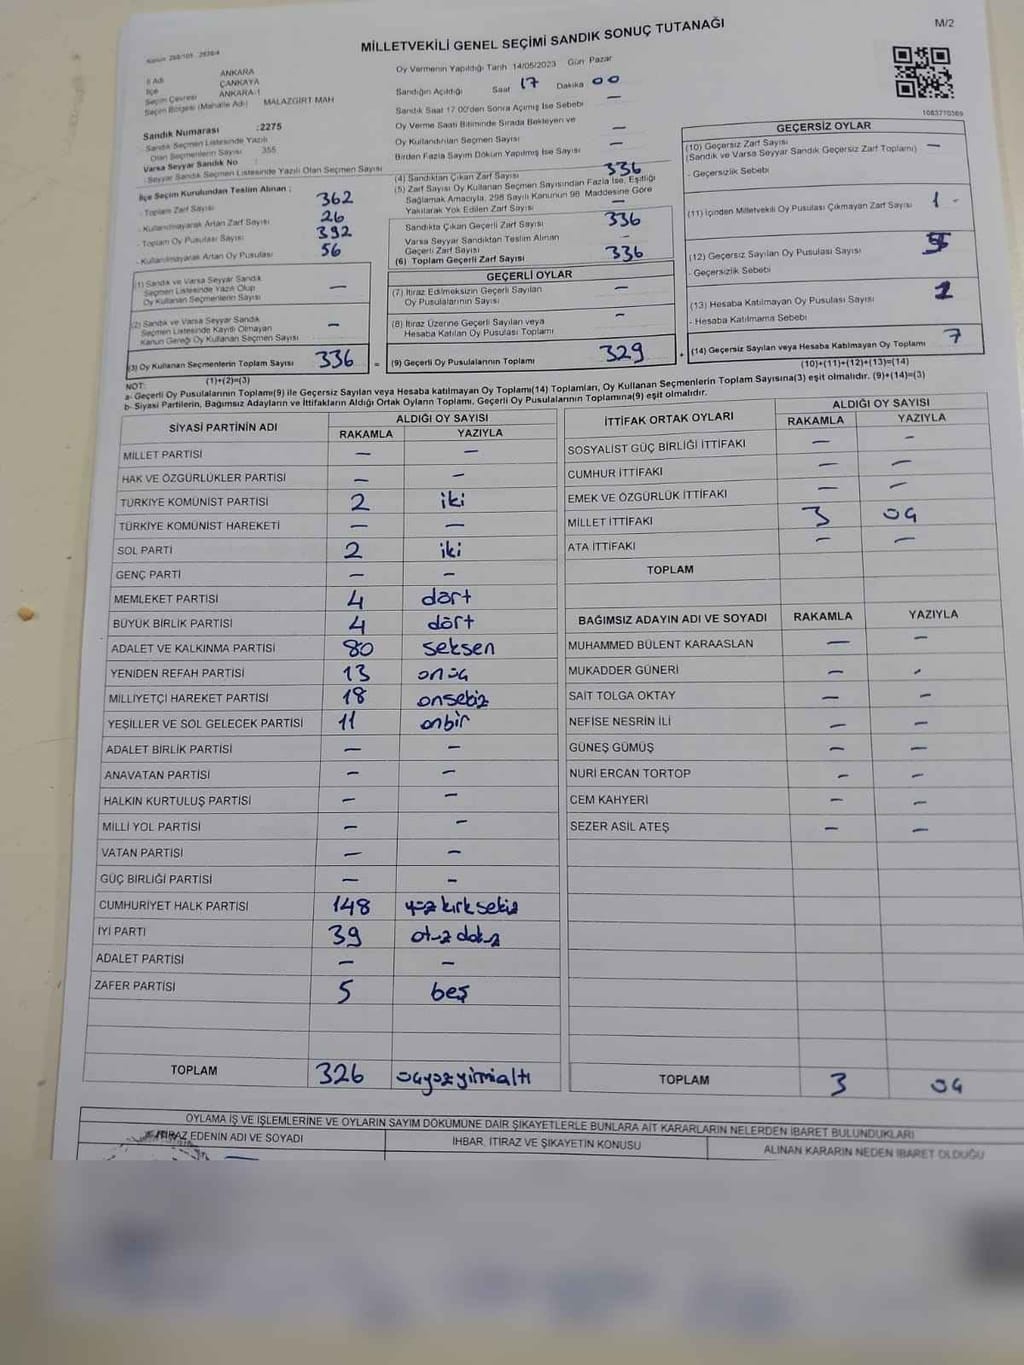 MİLLETVEKİLİ GENEL SEÇİMİ SANDIK SONUÇ TUTANAĞI
M/2
İl Adı ANKARA
İlçe ÇANKAYA
Seçim Çevresi ANKARA-1
Seçim Bölgesi (Mahalle Adı) MALAZGİRT MAH
Sandık Numarası :2275
Sandık Seçmen Listesinde Yazılı
Olan Seçmenlerin Sayısı 355
Varsa Seyyar Sandık No :
Seyyar Sandık Seçmen Listesinde Yazılı Olan Seçmen Sayısı
İlçe Seçim Kurulundan Teslim Alınan ;
- Toplam Zarf Sayısı 362
- Kullanılmayarak Artan Zarf Sayısı 26
- Toplam Oy Pusulası Sayısı 392
- Kullanılmayarak Artan Oy Pusulası 56
(1) Sandık ve Varsa Seyyar Sandık
Seçmen Listesinde Yazılı Olup
Oy Kullanan Seçmenlerin Sayısı —
(2) Sandık ve Varsa Seyyar Sandık
Seçmen Listesinde Kayıtlı Olmayan
Kanun Gereği Oy Kullanan Seçmen Sayısı —
(3) Oy Kullanan Seçmenlerin Toplam Sayısı 336 =
(1)+(2)=(3)
Oy Vermenin Yapıldığı Tarih 14/05/2023 Gün Pazar
Sandığın Açıldığı Saat 17 Dakika 00
Sandık Saat 17:00'den Sonra Açılmış İse Sebebi —
Oy Verme Saati Bitiminde Sırada Bekleyen ve
Oy Kullandırılan Seçmen Sayısı —
Birden Fazla Sayım Döküm Yapılmış İse Sayısı —
(4) Sandıktan Çıkan Zarf Sayısı 336
(5) Zarf Sayısı Oy Kullanan Seçmen Sayısından Fazla İse, Eşitliği
Sağlamak Amacıyla, 298 Sayılı Kanunun 98. Maddesine Göre
Yakılarak Yok Edilen Zarf Sayısı —
Sandıkta Çıkan Geçerli Zarf Sayısı 336
Varsa Seyyar Sandıktan Teslim Alınan
Geçerli Zarf Sayısı —
(6) Toplam Geçerli Zarf Sayısı 336
GEÇERLİ OYLAR
(7) İtiraz Edilmeksizin Geçerli Sayılan
Oy Pusulalarının Sayısı —
(8) İtiraz Üzerine Geçerli Sayılan veya
Hesaba Katılan Oy Pusulası Toplamı —
(9) Geçerli Oy Pusulalarının Toplamı 329 +
1083770569
GEÇERSİZ OYLAR
(10) Geçersiz Zarf Sayısı
(Sandık ve Varsa Seyyar Sandık Geçersiz Zarf Toplamı) —
- Geçersizlik Sebebi
(11) İçinden Milletvekili Oy Pusulası Çıkmayan Zarf Sayısı 1 -
(12) Geçersiz Sayılan Oy Pusulası Sayısı
- Geçersizlik Sebebi
(13) Hesaba Katılmayan Oy Pusulası Sayısı
- Hesaba Katılmama Sebebi
(14) Geçersiz Sayılan veya Hesaba Katılmayan Oy Toplamı 7
(10)+(11)+(12)+(13)=(14)
NOT:
a- Geçerli Oy Pusulalarının Toplam(9) ile Geçersiz Sayılan veya Hesaba katılmayan Oy Toplamı(14) Toplamları, Oy Kullanan Seçmenlerin Toplam Sayısına(3) eşit olmalıdır. (9)+(14)=(3)
b- Siyasi Partilerin, Bağımsız Adayların ve İttifakların Aldığı Ortak Oyların Toplamı, Geçerli Oy Pusulalarının Toplamına(9) eşit olmalıdır.
SİYASİ PARTİNİN ADI ALDIĞI OY SAYISI
RAKAMLA YAZIYLA
MİLLET PARTİSİ — —
HAK VE ÖZGÜRLÜKLER PARTİSİ — —
TÜRKİYE KOMÜNİST PARTİSİ 2 iki
TÜRKİYE KOMÜNİST HAREKETİ — —
SOL PARTİ 2 iki
GENÇ PARTİ — —
MEMLEKET PARTİSİ 4 dört
BÜYÜK BİRLİK PARTİSİ 4 dört
ADALET VE KALKINMA PARTİSİ 80 seksen
YENİDEN REFAH PARTİSİ 13 onüç
MİLLİYETÇİ HAREKET PARTİSİ 18 onsekiz
YEŞİLLER VE SOL GELECEK PARTİSİ 11 onbir
ADALET BİRLİK PARTİSİ — —
ANAVATAN PARTİSİ — —
HALKIN KURTULUŞ PARTİSİ — —
MİLLİ YOL PARTİSİ — —
VATAN PARTİSİ — —
GÜÇ BİRLİĞİ PARTİSİ — —
CUMHURİYET HALK PARTİSİ 148 yüzkırksekiz
İYİ PARTİ 39 otuzdokuz
ADALET PARTİSİ — —
ZAFER PARTİSİ 5 beş
TOPLAM 326 üçyüzyirmialtı
İTTİFAK ORTAK OYLARI ALDIĞI OY SAYISI
RAKAMLA YAZIYLA
SOSYALİST GÜÇ BİRLİĞİ İTTİFAKI — —
CUMHUR İTTİFAKI — —
EMEK VE ÖZGÜRLÜK İTTİFAKI — —
MİLLET İTTİFAKI 3 üç
ATA İTTİFAKI — —
TOPLAM
BAĞIMSIZ ADAYIN ADI VE SOYADI RAKAMLA YAZIYLA
MUHAMMED BÜLENT KARAASLAN — —
MUKADDER GÜNERİ — —
SAİT TOLGA OKTAY — —
NEFİSE NESRİN İLİ — —
GÜNEŞ GÜMÜŞ — —
NURİ ERCAN TORTOP — —
CEM KAHYERİ — —
SEZER ASİL ATEŞ — —
TOPLAM 3 üç
OYLAMA İŞ VE İŞLEMLERİNE VE OYLARIN SAYIM DÖKÜMÜNE DAİR ŞİKAYETLERLE BUNLARA AİT KARARLARIN NELERDEN İBARET BULUNDUKLARI
İTİRAZ EDENİN ADI VE SOYADI İHBAR, İTİRAZ VE ŞİKAYETİN KONUSU ALINAN KARARIN NEDEN İBARET OLDUĞU